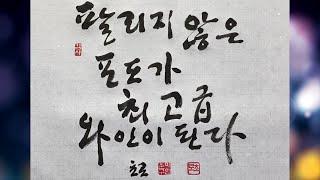 팔리지 않은
포도가
최고급
와인이 된다